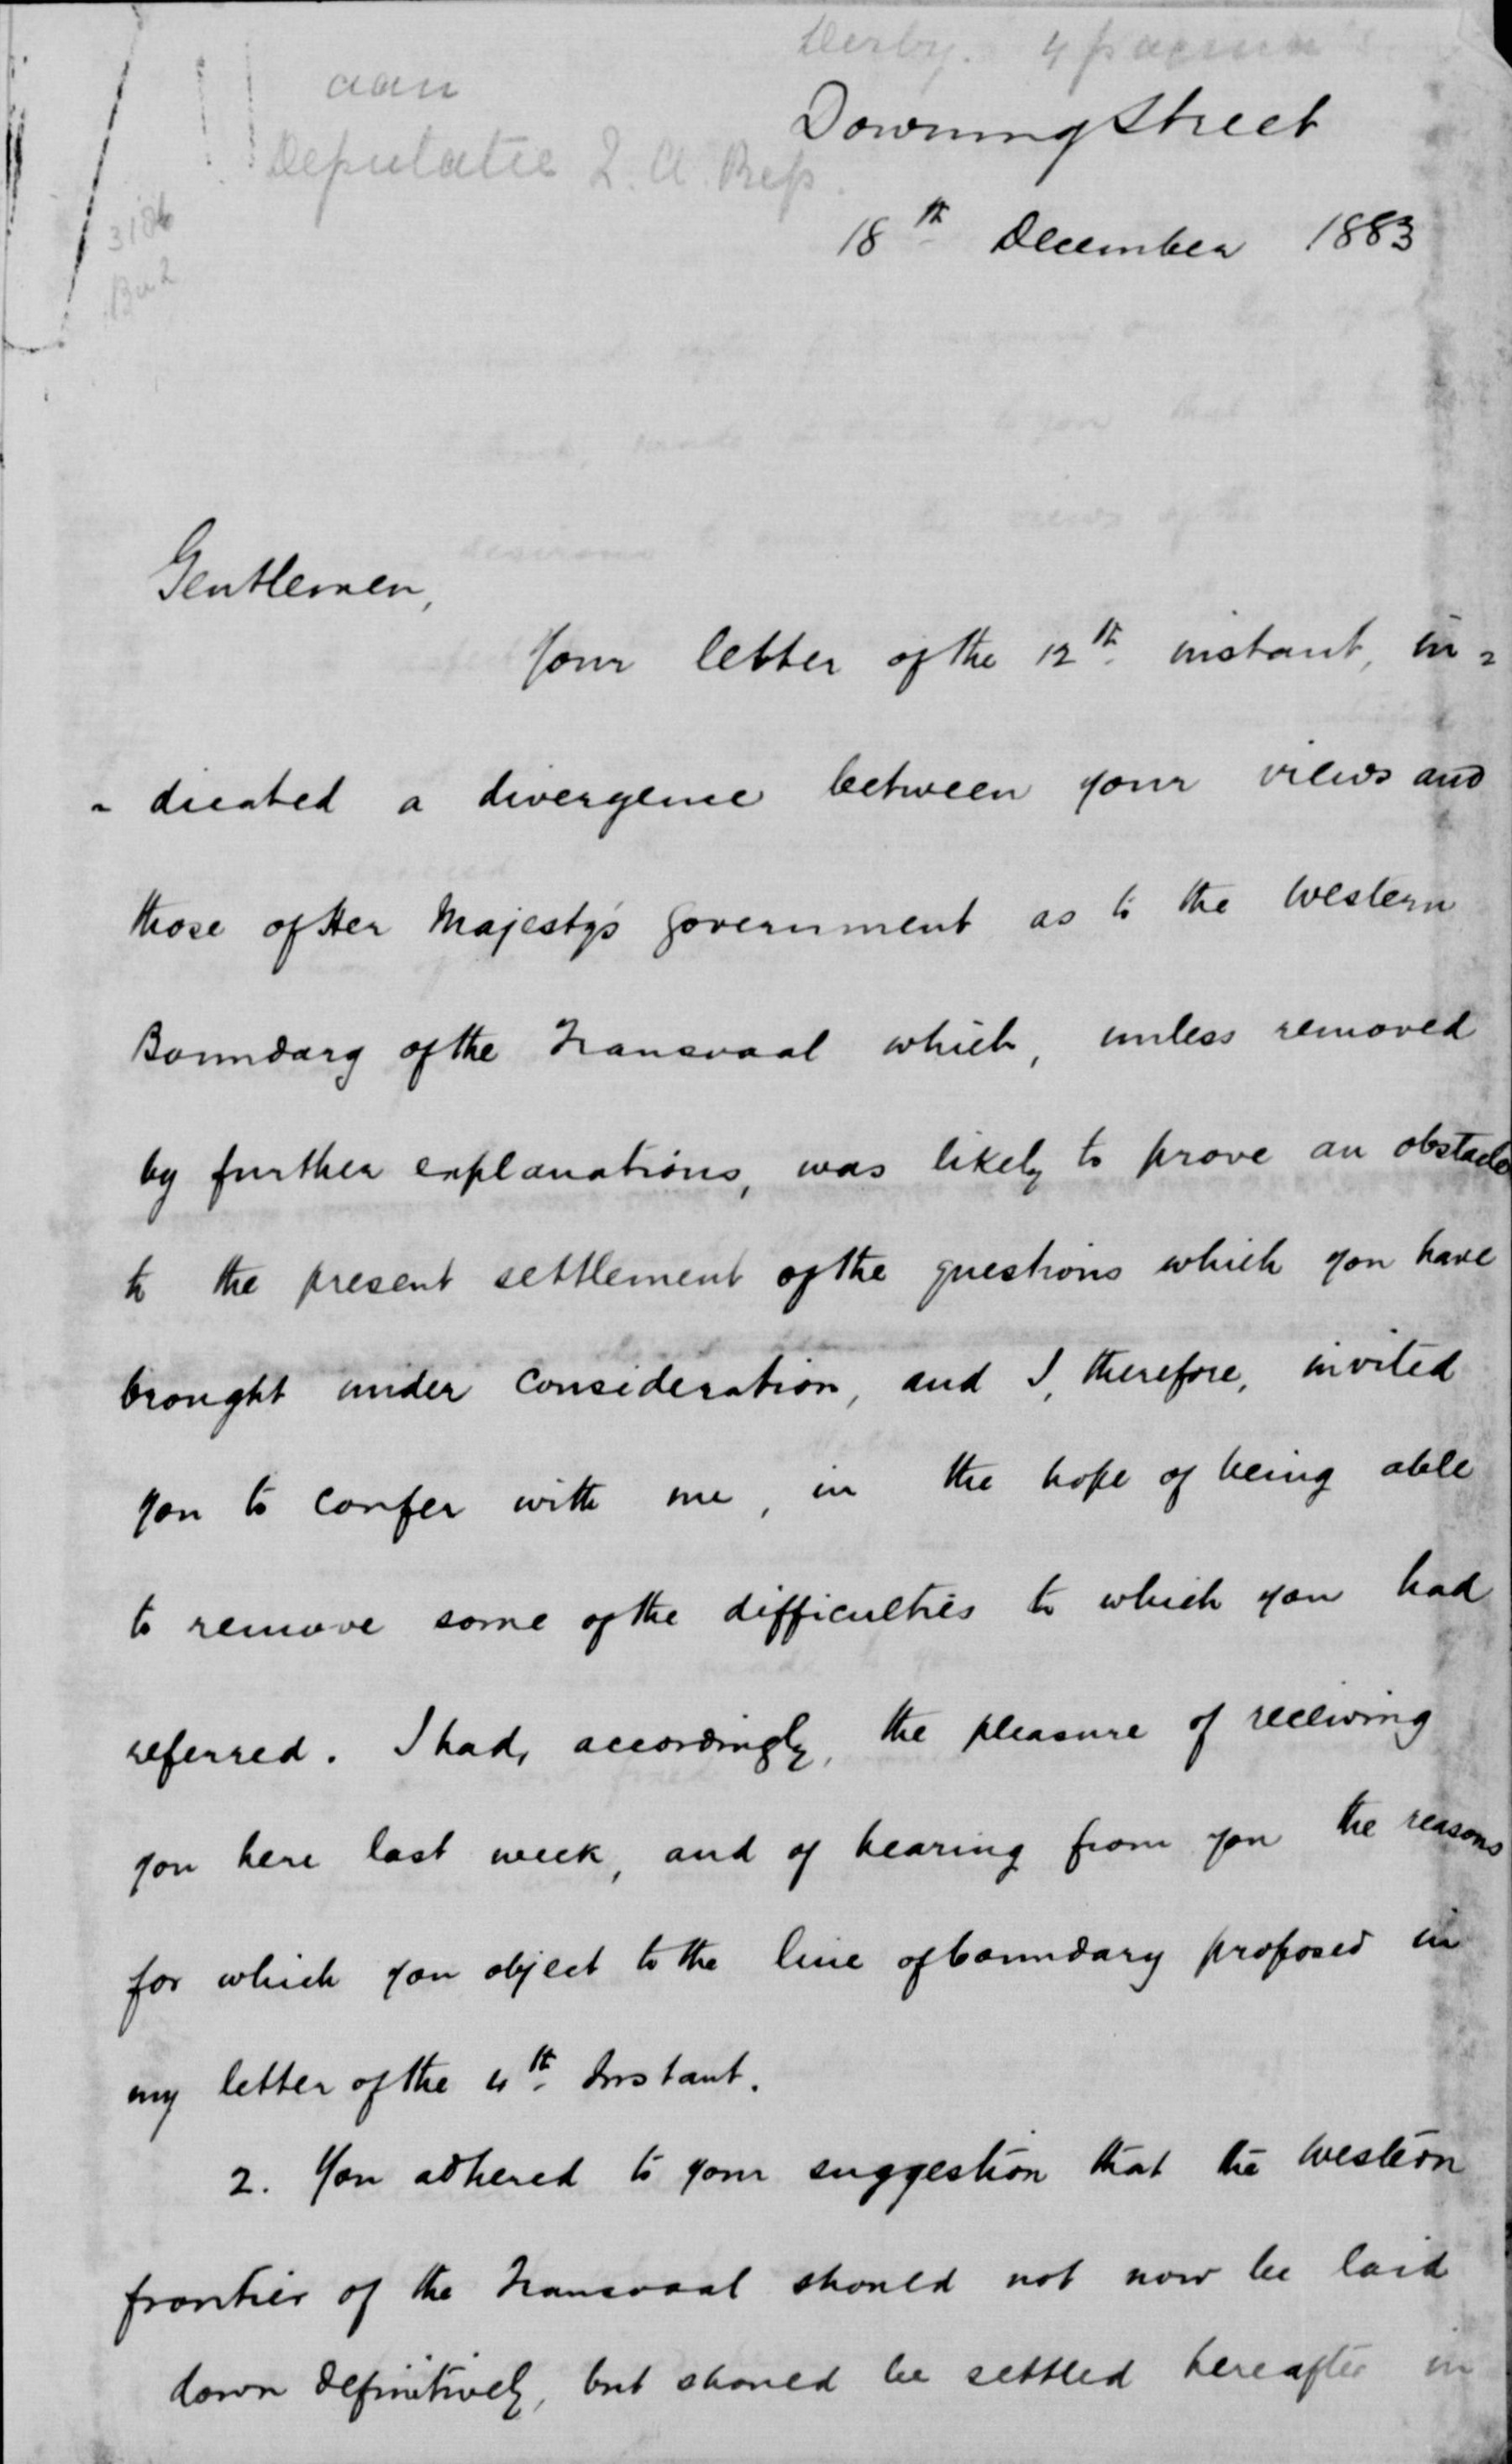 Derby.
aan
Deputatie Z. A. Rep.
Downing Street
18th December 1883
Gentlemen,
Your letter of the 12th instant, in=
= dicated a divergence between your views and
those of Her Majesty's Government as to the Western
Boundary of the Transvaal which, unless removed
by further explanations, was likely to prove an obstacle
to the present settlement of the questions which you have
brought under consideration, and I, therefore, invited
you to confer with me, in the hope of being able
to remove some of the difficulties to which you had
referred. I had, accordingly, the pleasure of receiving
you here last week, and of hearing from you the reasons
for which you object to the line of boundary proposed in
my letter of the 4th Instant.
2. You adhered to your suggestion that the western
frontier of the Transvaal should not now be laid
down definitively, but should be settled hereafter in